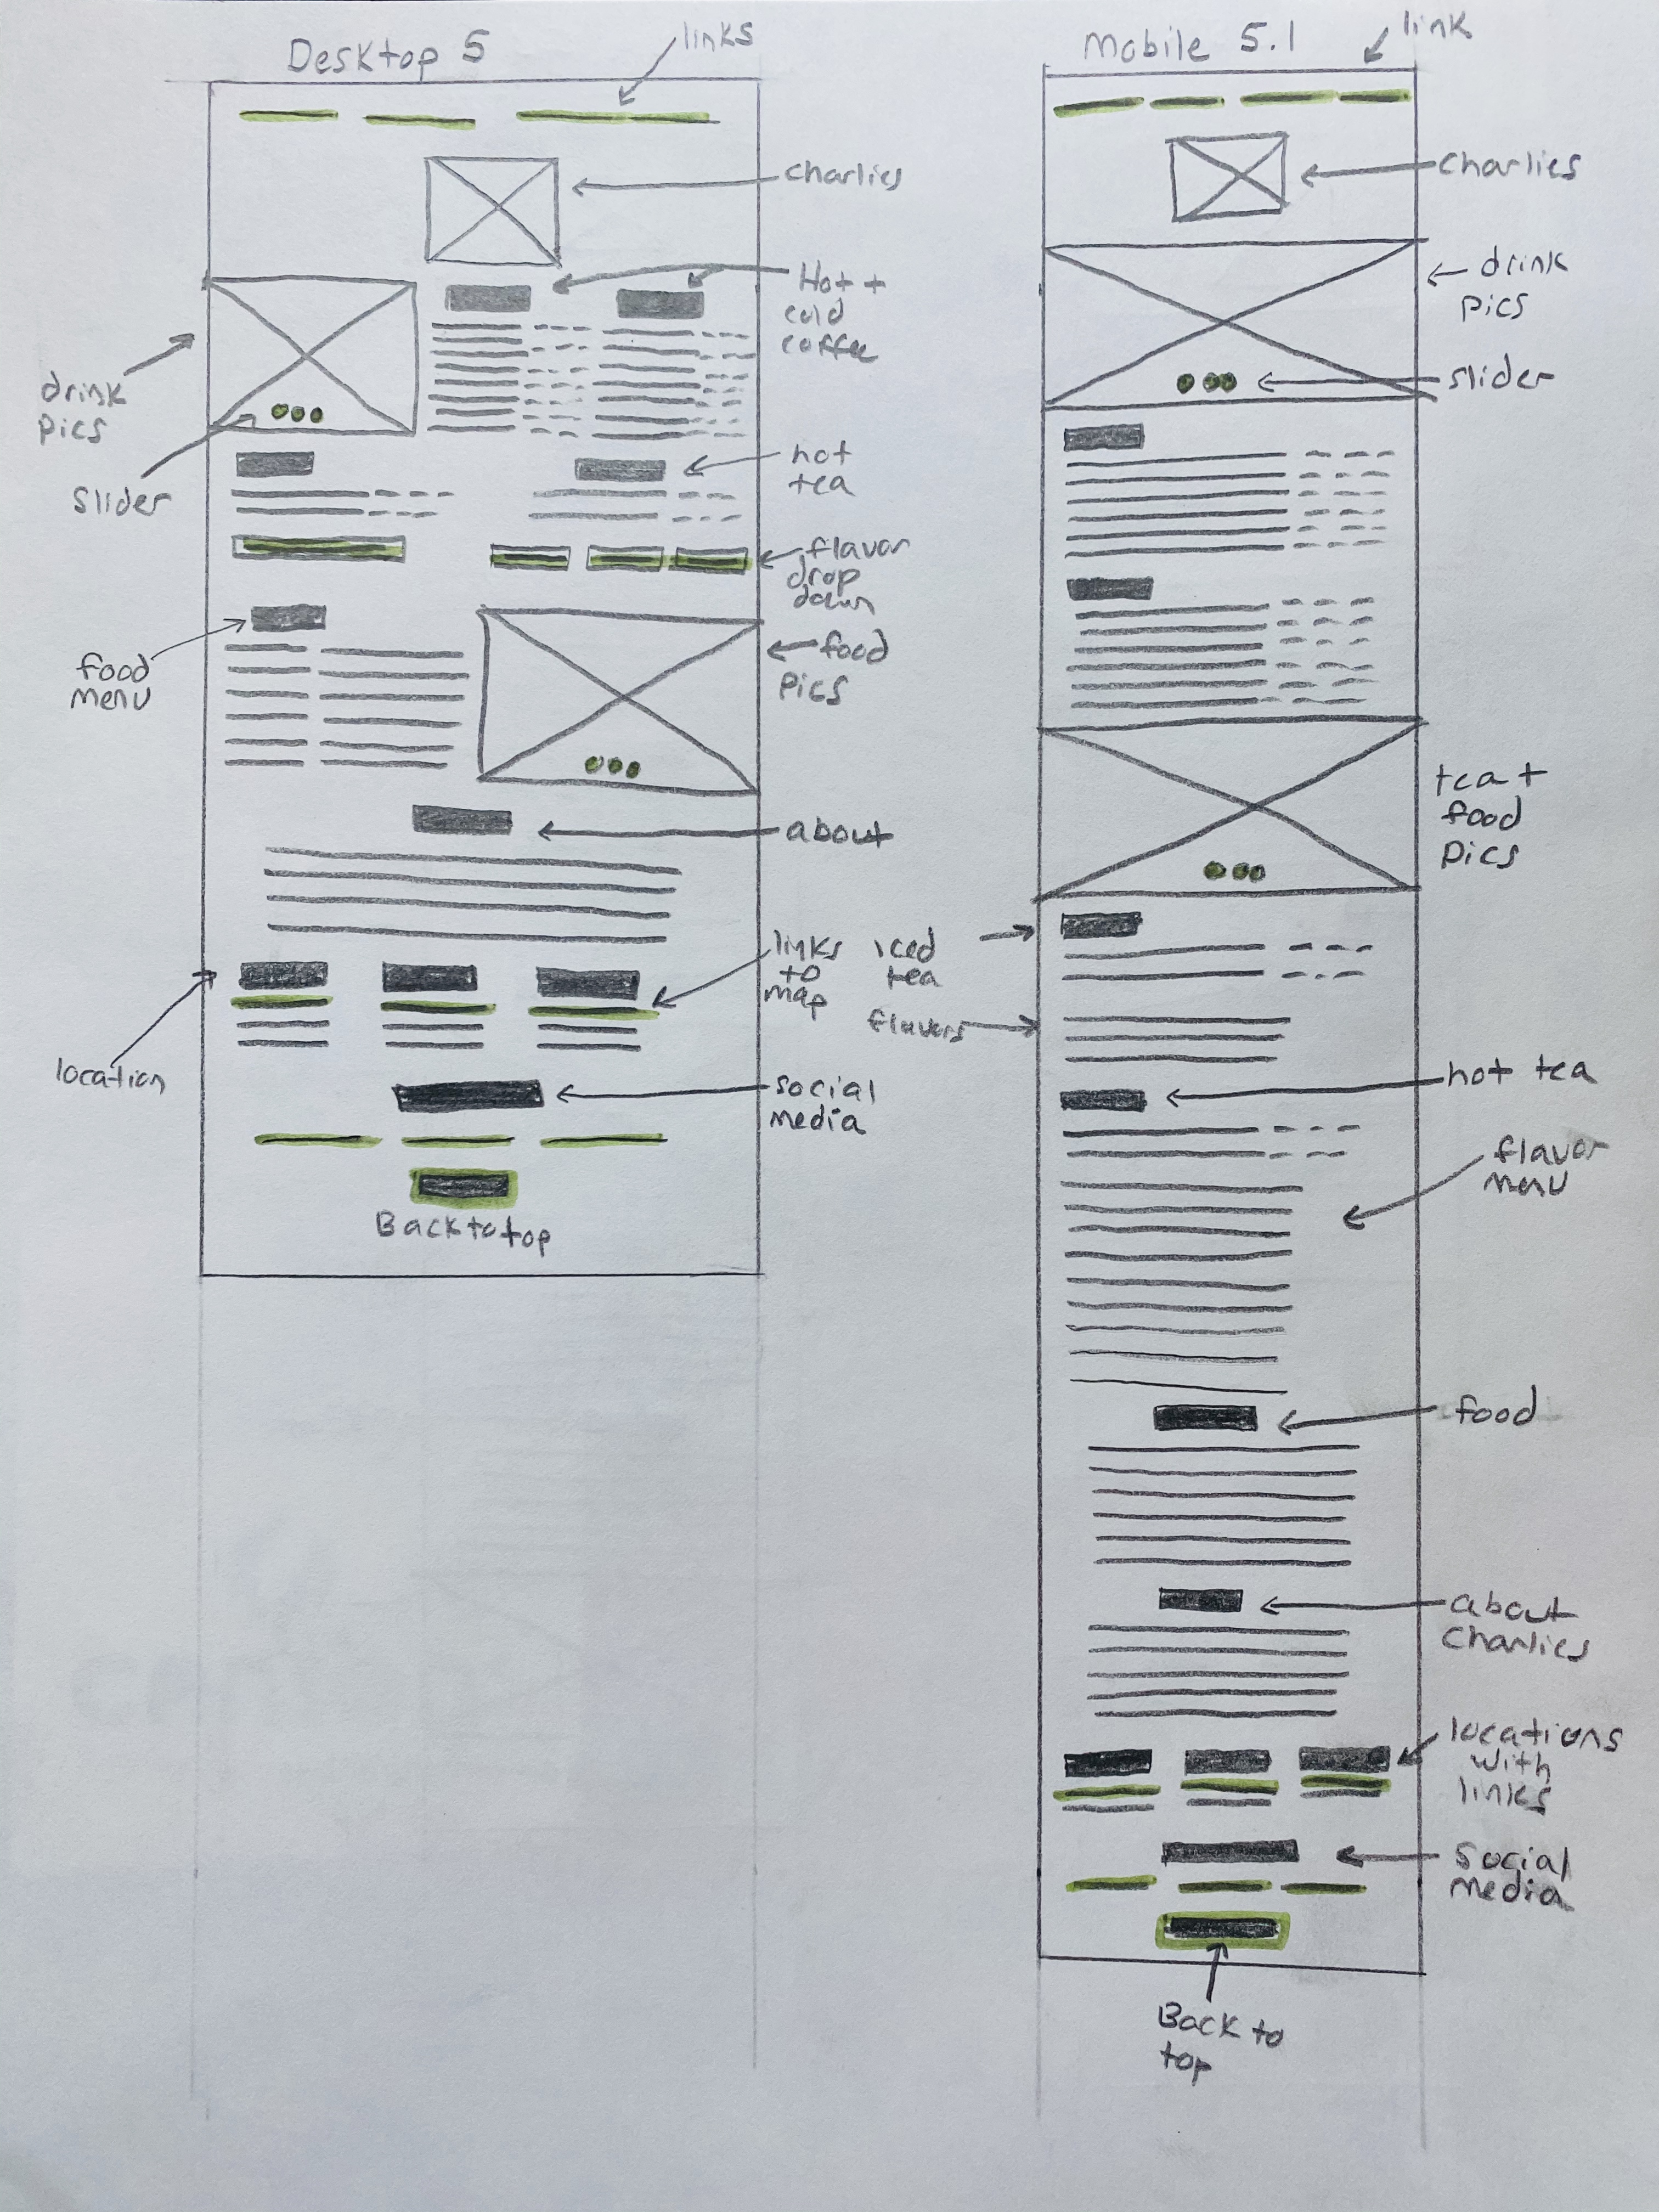 Desktop 5
links
Charlies
Hot +
cold
coffee
drink
pics
Slider
hot
tea
flavor
drop
down
food
menu
food
pics
about
links
to
map
location
social
media
Back to top
Mobile 5.1
link
Charlies
drink
pics
slider
tea +
food
pics
iced
tea
flavors
hot tea
flavor
menu
food
about
Charlies
locations
with
links
Social
media
Back to
top